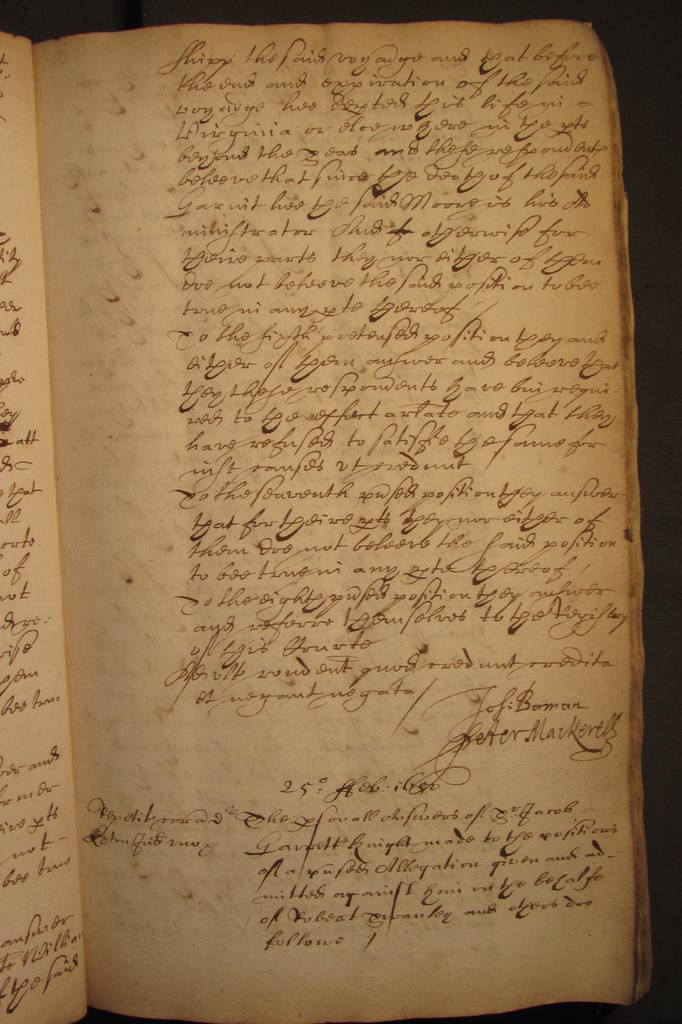 shipp the said voyadge and that before
the end and expiration of the said
voyadge hee depted this life in
Virginia or elcewhere in the pts
beyond the seas and these respondents
beleeve that since the death of the said
Garnit hee the said Moore is his Ad
ministrator And otherwise for
theire parts they nor either of them
doe not beleeve the said position to bee
true in any pte thereof /
To the sixth pretensed position they and
either of them answer and beleeve that
they these respondents have bin requi-
red to the effect arlate and that they
have refused to satisfie the same for
iust causes ut credunt
To the seaventh p'nsed position they answer
that for theire pts they nor either of
them doe not beleeve the said position
to bee true in any pte thereof /
To the eighth p'nsed position they answer
and referre themselves to the Registry
of this Courte
rondent quod credunt credita
et negant negata /
Joh: Boman
Peter Mackerell
25º. ffeb: 1650
Repetit corad
The p'sonall Answers of Sr Jacob
Garrett Knight made to the positions
of a p'nsed Allegation given and ad-
mitted against him on the behalfe
of Robert Swanley and others doe
followe /
ity
att
that
of
not
bee true
and
not
bee true
answer
of the said